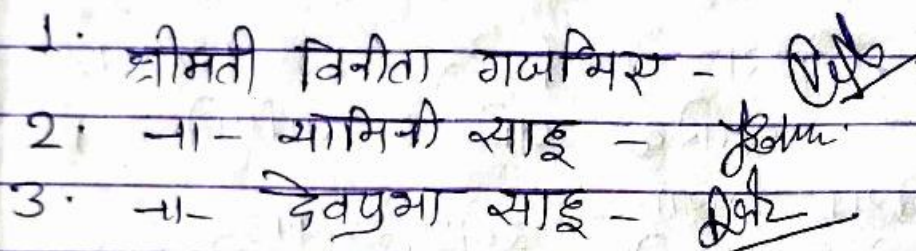 1. श्रीमती विनीता गजभिए -
2. -"- यामिनी साहू -
3. -"- देवप्रभा साहू -